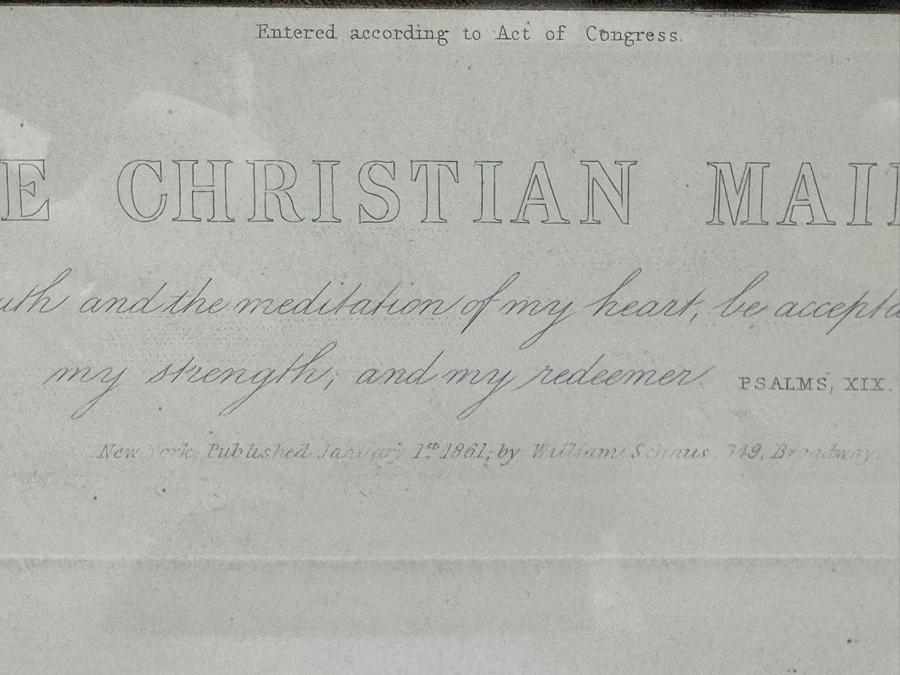 Entered according to Act of Congress.
E CHRISTIAN MAI
uth and the meditation of my heart, be accepta
my strength, and my redeemer. PSALMS, XIX.
New York, Published January 1st 1861, by William Schaus, 749, Broadway.